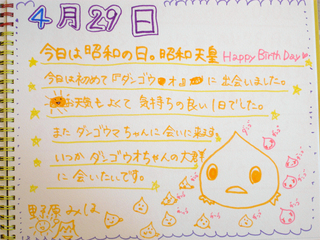 4月29日
今日は昭和の日。昭和天皇 Happy Birth Day
今日は初めて『ダンゴウオ』に出会いました。
お天気もよくて気持ちの良い1日でした。
またダンゴウオちゃんに会いに来ます。
いつかダンゴウオちゃんの大群
に会いたいです。
野原みほ